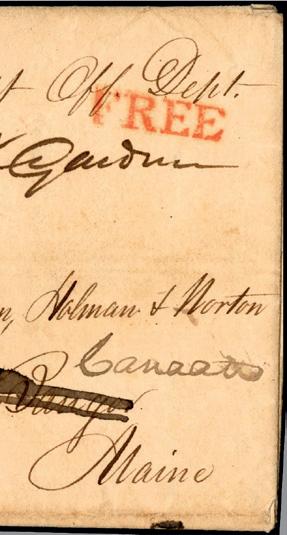 Off. Dept.
FREE
Gardner
Holman & Norton
Canaan
Bangor
Maine